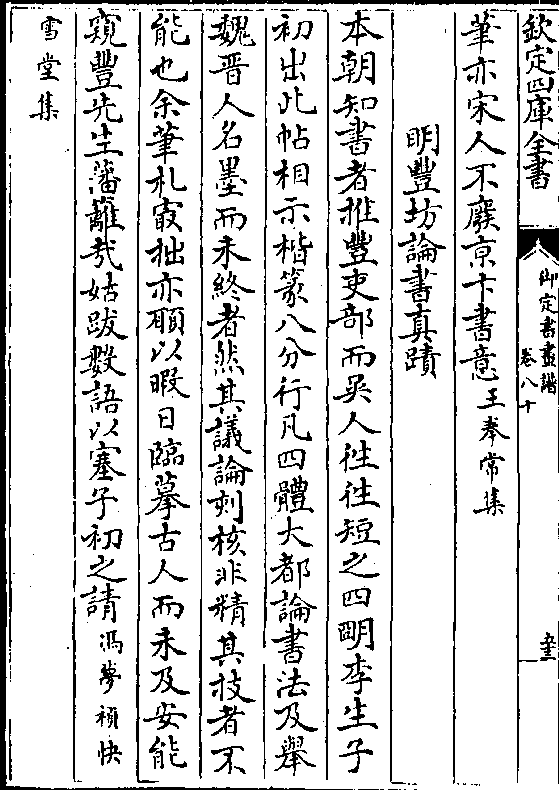 欽定四庫全書
御定書畫譜
卷八十
筆亦宋人不廢京卞書意王奉常集
明豐坊論書真蹟
本朝知書者推豐吏部而吳人往往短之四明李生子
初出此帖相示楷篆八分行凡四體大都論書法及舉
魏晉人名墨而未終者然其議論刻核非精其技者不
能也余筆札最拙亦頗以暇日臨摹古人而未及安能
窺豐先生藩籬哉姑跋數語以塞子初之請馮夢禎快
雪堂集